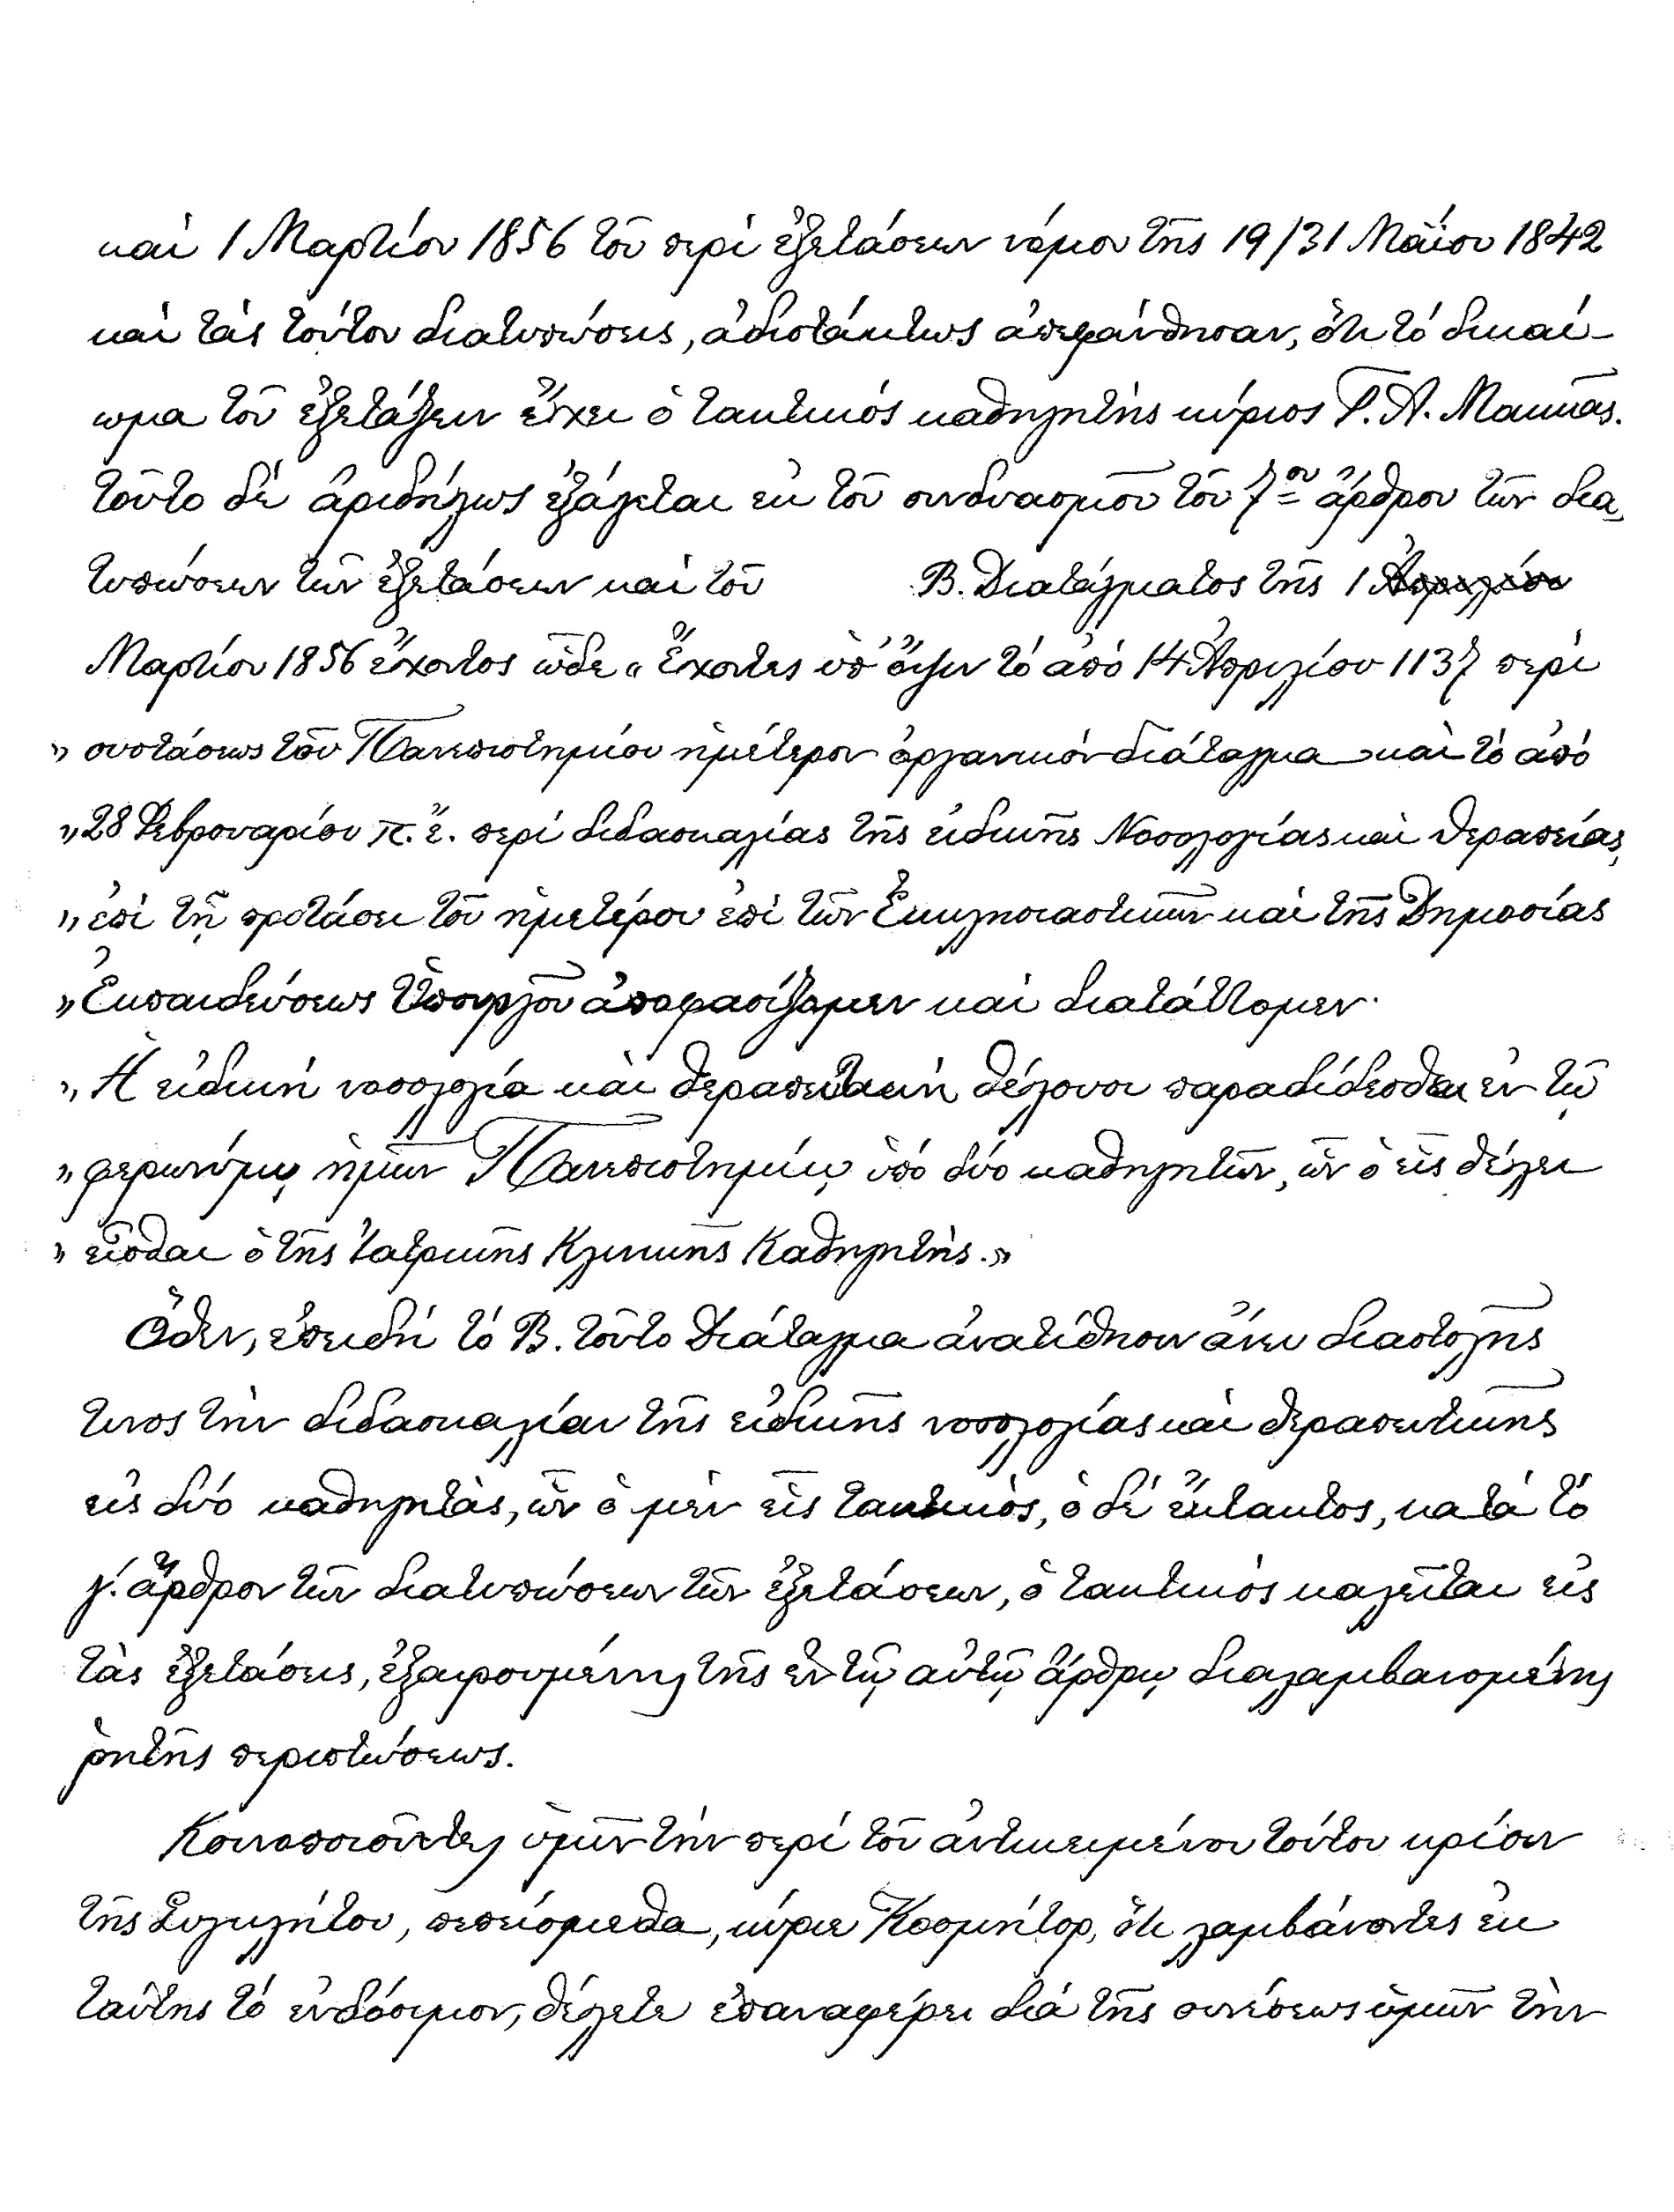 καὶ 1 Μαρτίου 1856 τοῦ περὶ ἐξετάσεων νόμου τῆς 19/31 Μαΐου 1842
καὶ τὰς τούτου διατυπώσεις, ἀδιστάκτως ἀπεφάνθησαν, ὅτι τὸ δικαί-
ωμα τοῦ ἐξετάζειν ἔχει ὁ τακτικός καθηγητής κύριος Γ. Α. Μακκᾶς.
τοῦτο δὲ ἀριδήλως ἐξάγεται ἐκ τοῦ συνδυασμοῦ τοῦ 7ου ἄρθρου τῶν δια-
τυπώσεων τῶν ἐξετάσεων καὶ τοῦ Β. Διατάγματος τῆς 1 Ἀπριλίου
Μαρτίου 1856 ἔχοντος ὧδε „ Ἔχοντες ὑπ' ὄψιν τό ἀπό 14 Ἀπριλίου 1137 περί
» συστάσεως τοῦ Πανεπιστημίου ἡμέτερον ὀργανικόν διάταγμα καὶ τὸ ἀπό
» 28 Φεβρουαρίου π. ἔ. περί διδασκαλίας τῆς εἰδικῆς Νοσολογίας καὶ θεραπείας,
» ἐπί τῇ προτάσει τοῦ ἡμετέρου ἐπί τῶν Ἐκκλησιαστικῶν καὶ τῆς Δημοσίας
» Ἐκπαιδεύσεως Ὑπουργοῦ ἀποφασίζομεν καὶ διατάττομεν·
» Ἡ εἰδική νοσολογία καὶ θεραπευτική θέλουσι παραδίδεσθαι ἐν τῷ
» φερωνύμῳ ἡμῶν Πανεπιστημίῳ ὑπό δύο καθηγητῶν, ὧν ὁ εἷς θέλει
» εἶσθαι ὁ τῆς Ἰατρικῆς Κλινικῆς Καθηγητής.»
Ὅθεν, ἐπειδή τό Β. τοῦτο Διάταγμα ἀνατίθησιν ἄνευ διαστολῆς
τινος τὴν διδασκαλίαν τῆς εἰδικῆς νοσολογίας καὶ θεραπευτικῆς
εἰς δύο καθηγητὰς, ὧν ὁ μὲν εἷς τακτικὸς, ὁ δέ ἔκτακτος, κατά τό
γ΄. ἄρθρον τῶν διατυπώσεων τῶν ἐξετάσεων, ὁ τακτικὸς καλεῖται εἰς
τὰς ἐξετάσεις, ἐξαιρουμένης τῆς ἐν τῷ αὐτῷ ἄρθρῳ διαλαμβανομένης
ῥητῆς περιπτώσεως.
Κοινοποιοῦντες ὑμῖν τήν περί τοῦ ἀντικειμένου τούτου κρίσιν
τῆς Συγκλήτου, πεπείσμεθα, κύριε Κοσμήτορ, ὅτι λαμβάνοντες ἐκ
ταύτης τό ἐνδόσιμον, θέλετε ἐπαναφέρει διά τῆς συνέσεως ὑμῶν τὴν